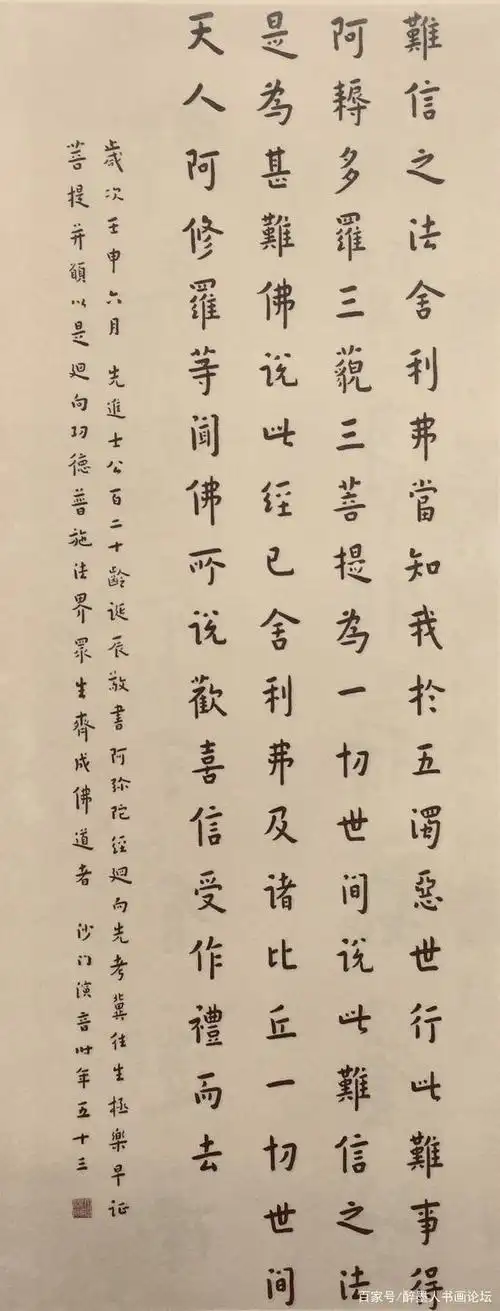 難信之法舍利弗當知我於五濁惡世行此難事得
阿耨多羅三藐三菩提為一切世間說此難信之法
是為甚難佛說此經已舍利弗及諸比丘一切世間
天人阿修羅等聞佛所說歡喜信受作禮而去
歲次壬申六月 先進士公百二十齡誕辰敬書阿弥陀經廻向先考冀往生極樂早证
菩提并願以是廻向功德普施法界眾生齊成佛道者 沙门演音时年五十三
百家号/醉墨人书画论坛